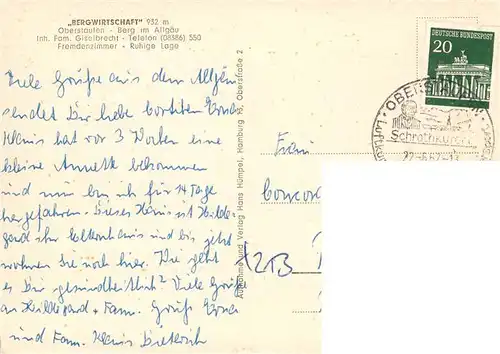 „BERGWIRTSCHAFT" 932 m
Oberstaufen - Berg im Allgäu
Inh. Fam. Giselbrecht - Telefon (08386) 550
Fremdenzimmer - Ruhige Lage
Viele Grüße aus dem Allgäu
sendet Dir liebe Erna
Klaus hat vor 3 Wochen eine
kleine Annett bekommen
und nun bin ich für 14 Tage
hergefahren. Dieses Haus ist Hilde-
gard ihr Elternhaus und bis jetzt
wohnen Sie noch hier. Wie geht
es Dir gesundheitlich? Viele Grüße
an Hildegard + Fam. Gruß Erna
und Fam. Klaus Dietrich
Aufnahme und Verlag Hans Hümpel, Hamburg 13, Oberstraße 2
DEUTSCHE BUNDESPOST
20
OBERS
Schrothkurort
Luftku
Frau